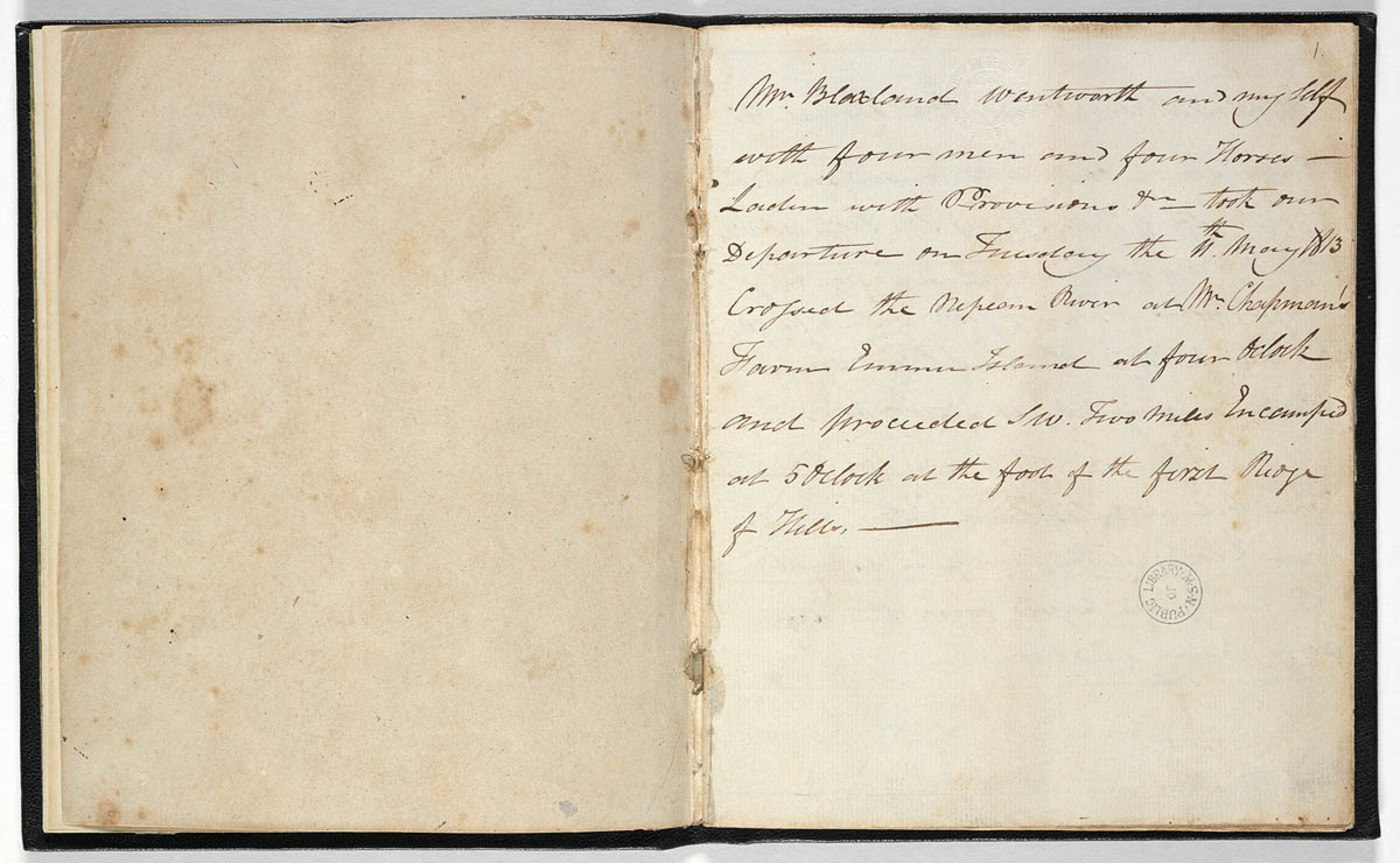 1.
Mr. Blaxland Wentworth and my Self
with four men and four Horses —
Laden with Provisions &c — took our
Departure on Tuesday the 11th. May 1813
Crossed the Nepean River at Mr. Chapman's
Farm Emmu Island at four Oclock
and proceeded SW. Two miles Encamped
at 5 Oclock at the foot of the first Ridge
of Hills. —
PUBLIC LIBRARY · N.S.W.